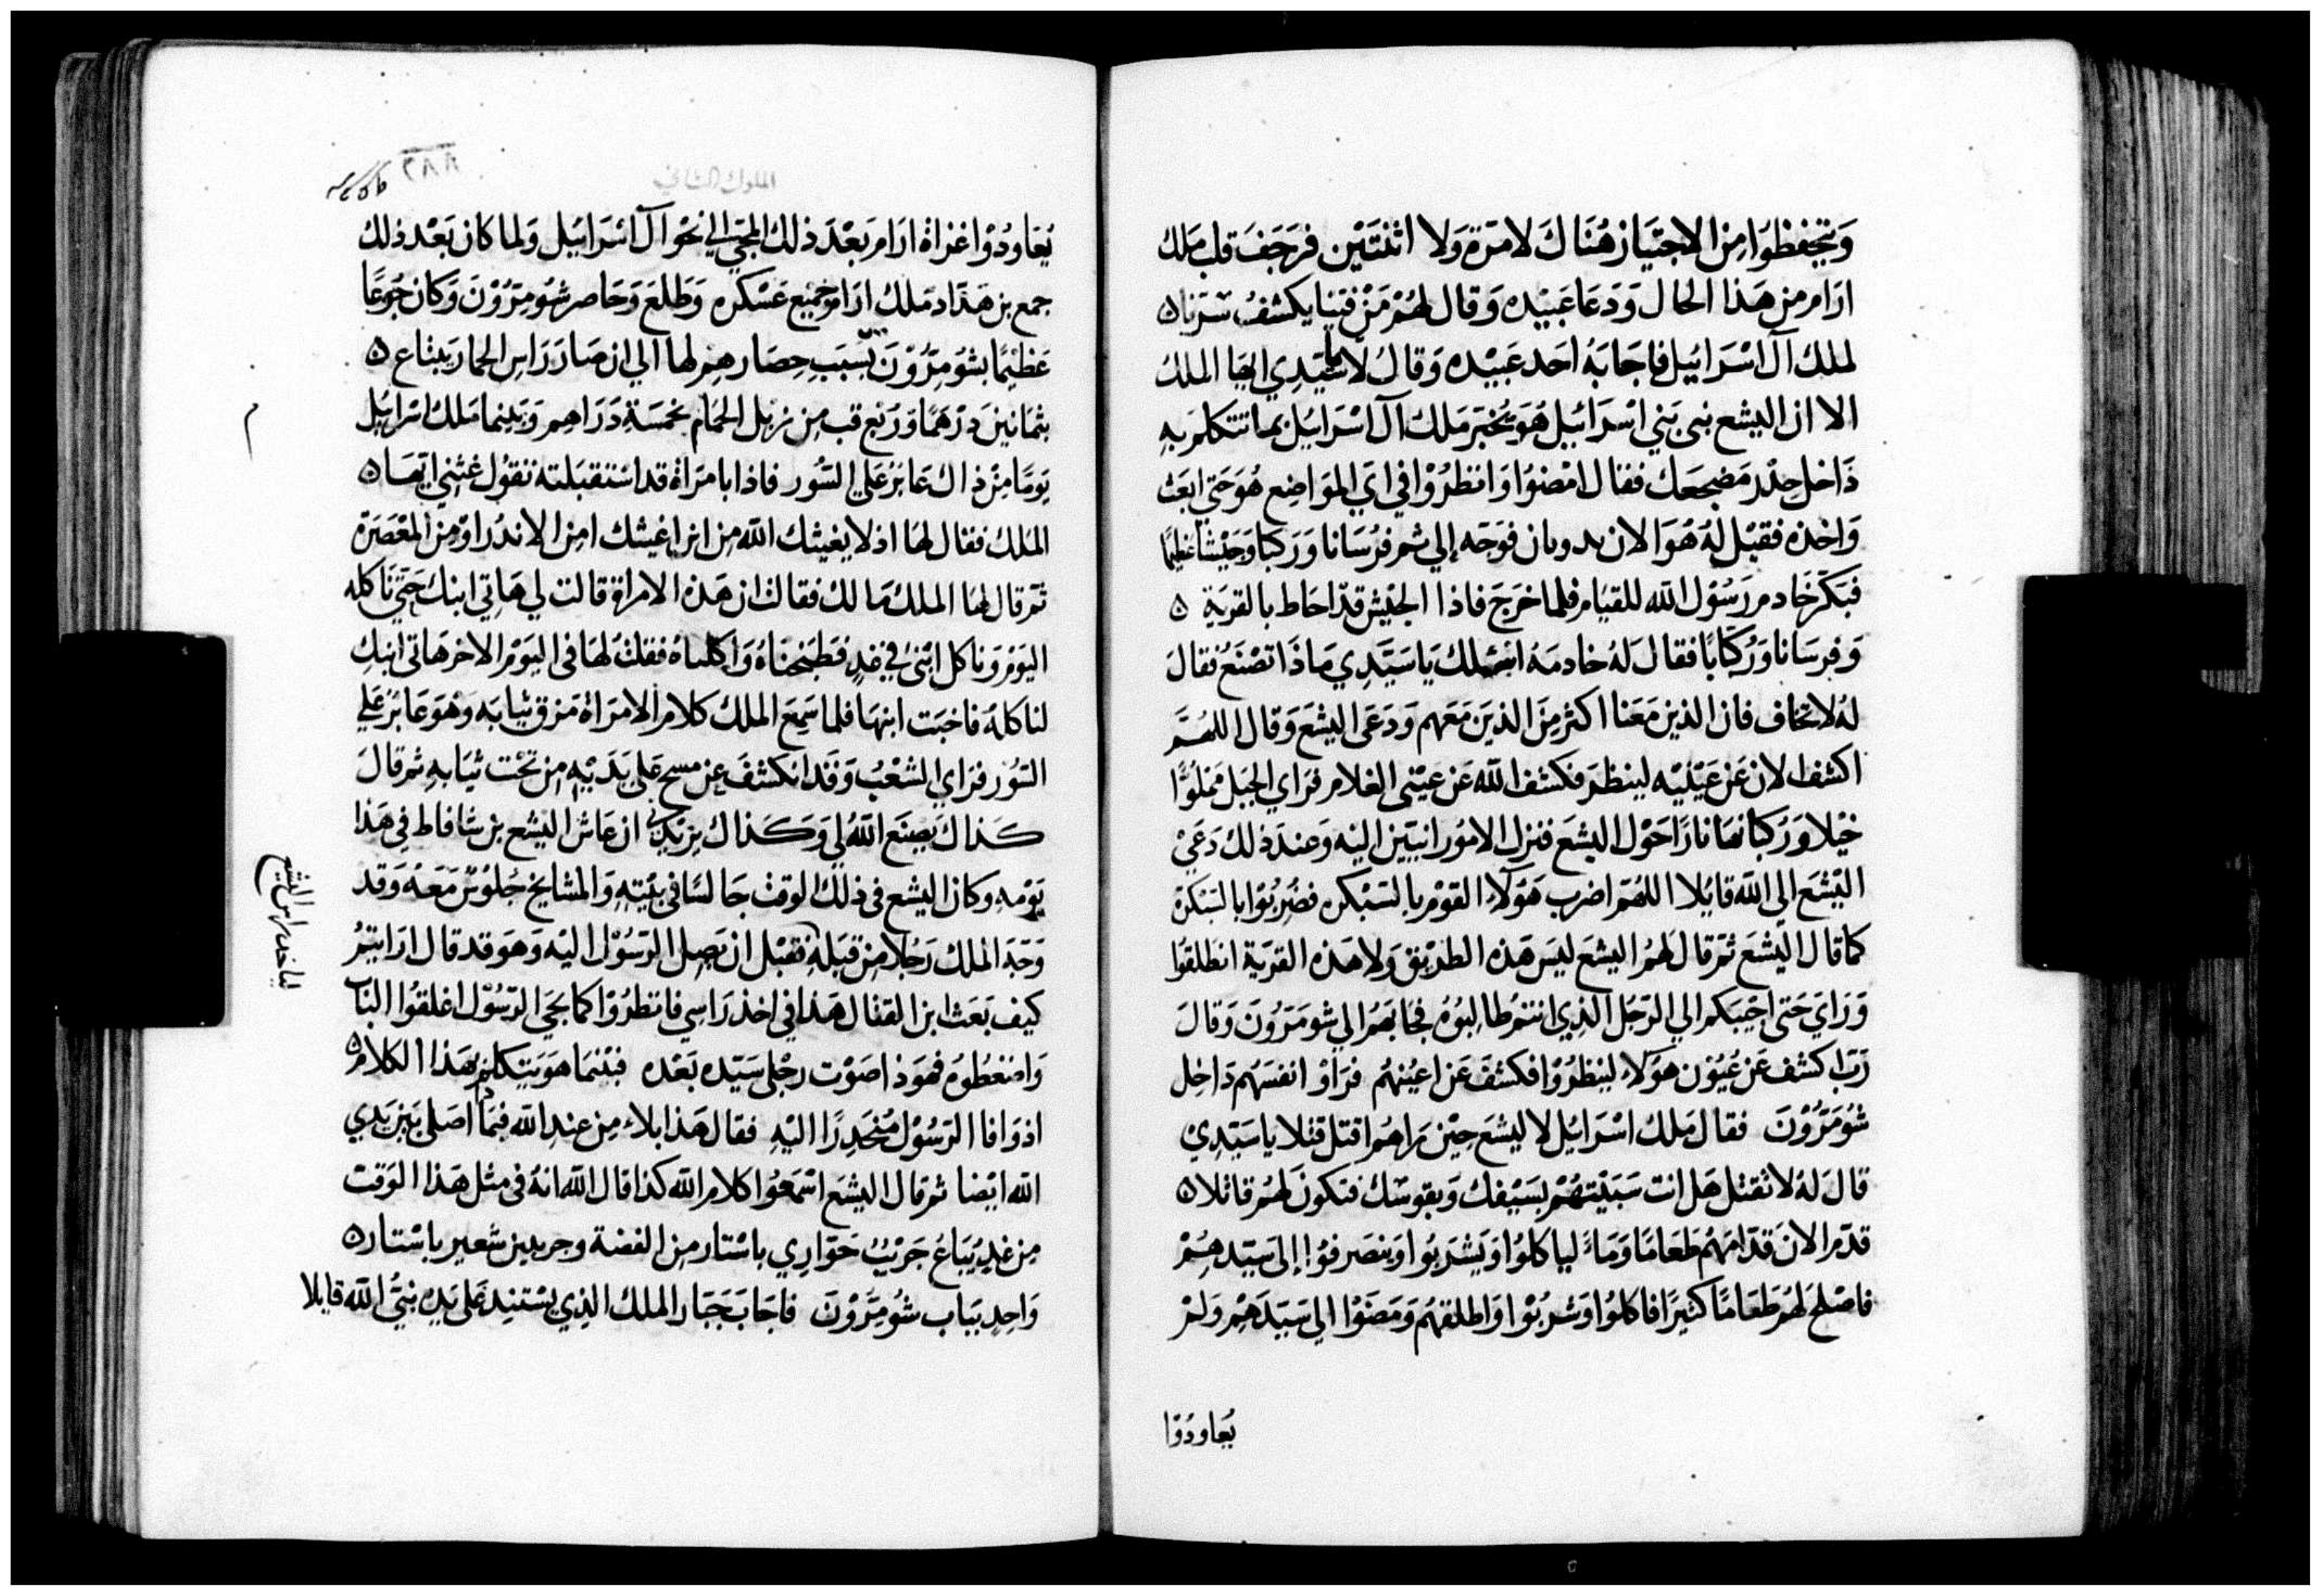 وَيتحفظوُا مِن الاجتيَاز هُنَاكَ لامَرة وَلا اثنتَيْن فرَجَفَ قلب مَلك
ارَام من هَذا الحال وَدَعَا عَبيْده وَقال لهُمْ مَنْ فينا يكشفُ سَرنا ه
لملك آل اسْرَائيل فاجَابَهُ احَد عَبيْده وَقالُ لا ياسَيّدِي ايهَا الملكُ
الا ان اليشع نبى بَني اسْرَائيل هُوَ يخبَر مَلك آل اسْرَائيل بما تتكلم بهِ
دَاخل حِدْر مَضجعَك فقال امْضوُا وَانظرُوْا في اي الموَاضِع هُوَ حَتى ابَعَث
وَاخذه فقيْل لهُ هُوَ الان بدوثان فوَجّه إلي ثم فرُسَانا وَرَكبًا وَجَيْشًا عَظيمًا
فبَكّر خَادم رَسُوْل الله للقيَام فلما خرَجَ فاذا الجَيْش قدْ احَاط بالقريَة ه
وَفرسَانا وَرُكّابًا فقال لهُ خادمَهُ يَا سَيّدِي مَاذَا تصْنَعُ فقالَ
لهُ لا تخاف فان الذين مَعَنا اكثر مِنَ الذينَ مَعَهم وَدَعَى اليشَع وَقال اللهُمَّ
اكشف الان عَن عَيْنيْه لينظرَ فكشف الله عَن عيْنى الغلام فرَاي الجَبَل مَملوُّا
خيْلا وَرُكبانا نارًا حَوْل اليشَع فنزل الامُورانييّن اليْه وَعندَ ذلك دَعَىْ
اليْشَع الى الله قايُلا اللهُمّ اضرب هَؤلآء القوْم بالسَبْكره فضُرِبُوْا بالسَبْكرَة
كما قال اليْشَع ثمّ قال لهَمُ اليشَع ليسَ هَذه الطريْق وَلا هَذه القريَة انطلقوُا
وَرَاي حَتى اجيَبكم الي الرّجُل الذي انتمْ طالبُوهُ فجَا بهَمُ الي شومَرّوُنَ وَقالَ
رَبّ اكشف عَن عُيُوْن هَؤلآء لينظرُوْا فكشفَ عَن اعيُنهُم فرَاوْا انفسَهُم دَاخِل
شُومَرُّوْنَ فقال مَلك اسْرَائيل لاليشَع حيْن رَاهُم اقتل قتلا ياسَيّدِيْ
قالَ لهُ لا تقتل هَل انت سَبَيْتهُمْ بسَيْفك وَبقوسْك فتكونَ لهُم قاتلا ه
قدّم الان قدّامَهُم طعَامًا وَمَاءً لياكلوُا وَيَشربُوا وَينصَرفوُا إلى سَيّدهِمْ
فاصْلحَ لهُم طعَامًا كثيرًا فاكلوُا وَشربُوْا وَاطلقهُم وَمَضَوْا الي سَيّدَهِمْ وَلمْ
يُعاودُوْا
الملوك الثاني
٢٨٨
يُعَاودُوْا غزاة ارَام بعْدَ ذلك المجي الي نحْو آل اسْرَايئل وَلما كان بَعْد ذلك
جمع بن هَدَاد مَلك ارَام جميْع عَسْكره وَطلعَ وَحَاصر شومِرّوْنَ وَكان جُوعًا
عَظيْمًا بشومِرُّوْنَ بسَبَبِ حِصَارهِم لها الي ان صَارَ رَاس الحمار يبتاع ه
بثمَانينَ درْهمًا وَرُبع قب مِن زبْل الحَمام بخمسَة دَرَاهِم وَبَينما مَلك اسْرائيُل
يَومًا مِنْ ذاك عَابرْ عَلي السُّور فاذا بامرَاة قد اسْتقبَلته تقوُل غثني ايّهَا ه
الملك فقال لهَا اذ لا يغيثك الله مِن اين اغيثك امِن الاندَر اوْ مِن المعْصَرَة
ثمَ قال لهَا الملك مَا لك فقالت ان هَذه الامراة قالت لي هَاتِي ابنك حَتّى ناكله
اليَوْم وَناكل ابْنى في غدٍ فطبَخنَاهُ وَاكلناهُ فقلتُ لهَا في اليَوْم الاخر هَاتى ابنِكِ
لناكلهُ فاخبَت ابنهَا فلما سَمِعَ الملك كلام الامرَاة مَزق ثيابَه وَهْوَ عَابرُ عَلي
السُوْر فرَاي الشعْبُ وَقد انكشفَ عِن مسح عَلى بَدَنِهِ مِن تحْت ثيَابهِ ثم قالَ
كَذاكَ يصِنَع اللهُ لِي وَكذاك يزيدني ان عَاش اليْشع بن شافاط في هَذا
يَوْمهِ وكان اليشع في ذلك الوقتْ جَالسًا في بَيْتِهِ وَالمشايخ جُلوْسٌ مَعَهُ وَقد
وَجّهَ الملك رَجُلا مِن قبَلهِ فقبْل ان يَصِل الرَسُوْل اليْه وَهوَ قد قال ارَايتمُ
كيف بَعَث ابن القتّال هَذا في اخذ رَاسِي فانظرُوْا كما يجي الرّسُوْل اغلقوُا البَاب
وَاضغطوُه فهوَذا صَوْت رجْلى سَيّده بَعْده فبيْنمَا هوَ يَتكلم بهَذا الكلام ه
اذ وَافا الرَسُوْل مُنحَدِرًا اليْهِ فقال هَذا بلاء مِن عندِ الله فبمَاذا اصَلى بَين يَدي
الله ايْضا ثم قال اليشَع اسْمَعُوا كلام الله كذا قال الله انهُ في مثل هَذا الوَقت
مِن غدٍ يُبَاعُ جَريْبُ حَوّارِي باسْتار مِن الفضة وجريبين شعير باسْتار ه
وَاحِدٍ ببَاب شُومِرَّوْنَ فاجَابَ جَبَّار الملك الذِي يسْتنِد عَلى يَده نبيُّ الله قايلا
لياخد راس اليشع